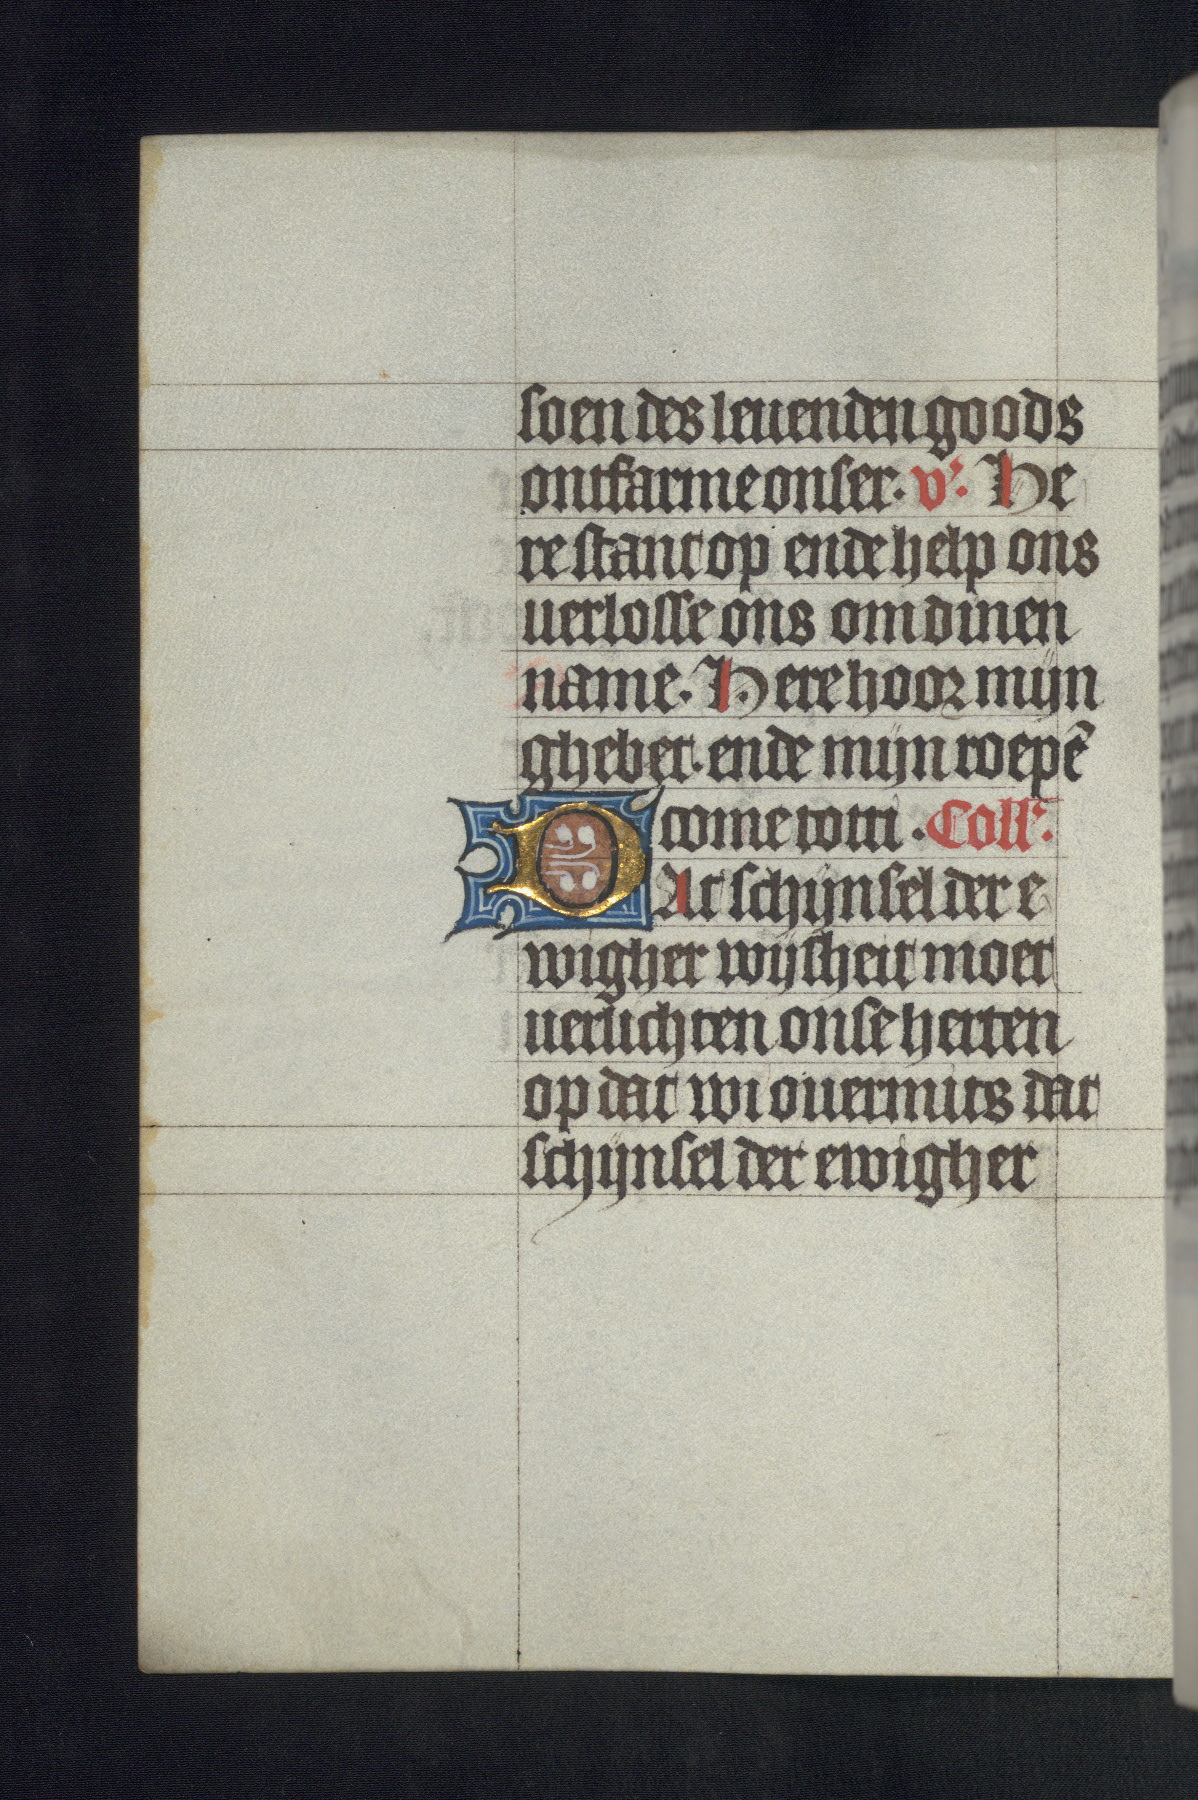 soen des leuenden goods
ontfarme onser. v̓. He
re stant op ende help ons
uerlosse ons om dinen
name. Here hoor mijn
ghebet. ende mijn roepē
come totti. Coll̓.
DAt schijnsel der e
wigher wijsheit moet
uerlichten onse herten
op dat wi ouermits dat
schijnsel der ewigher